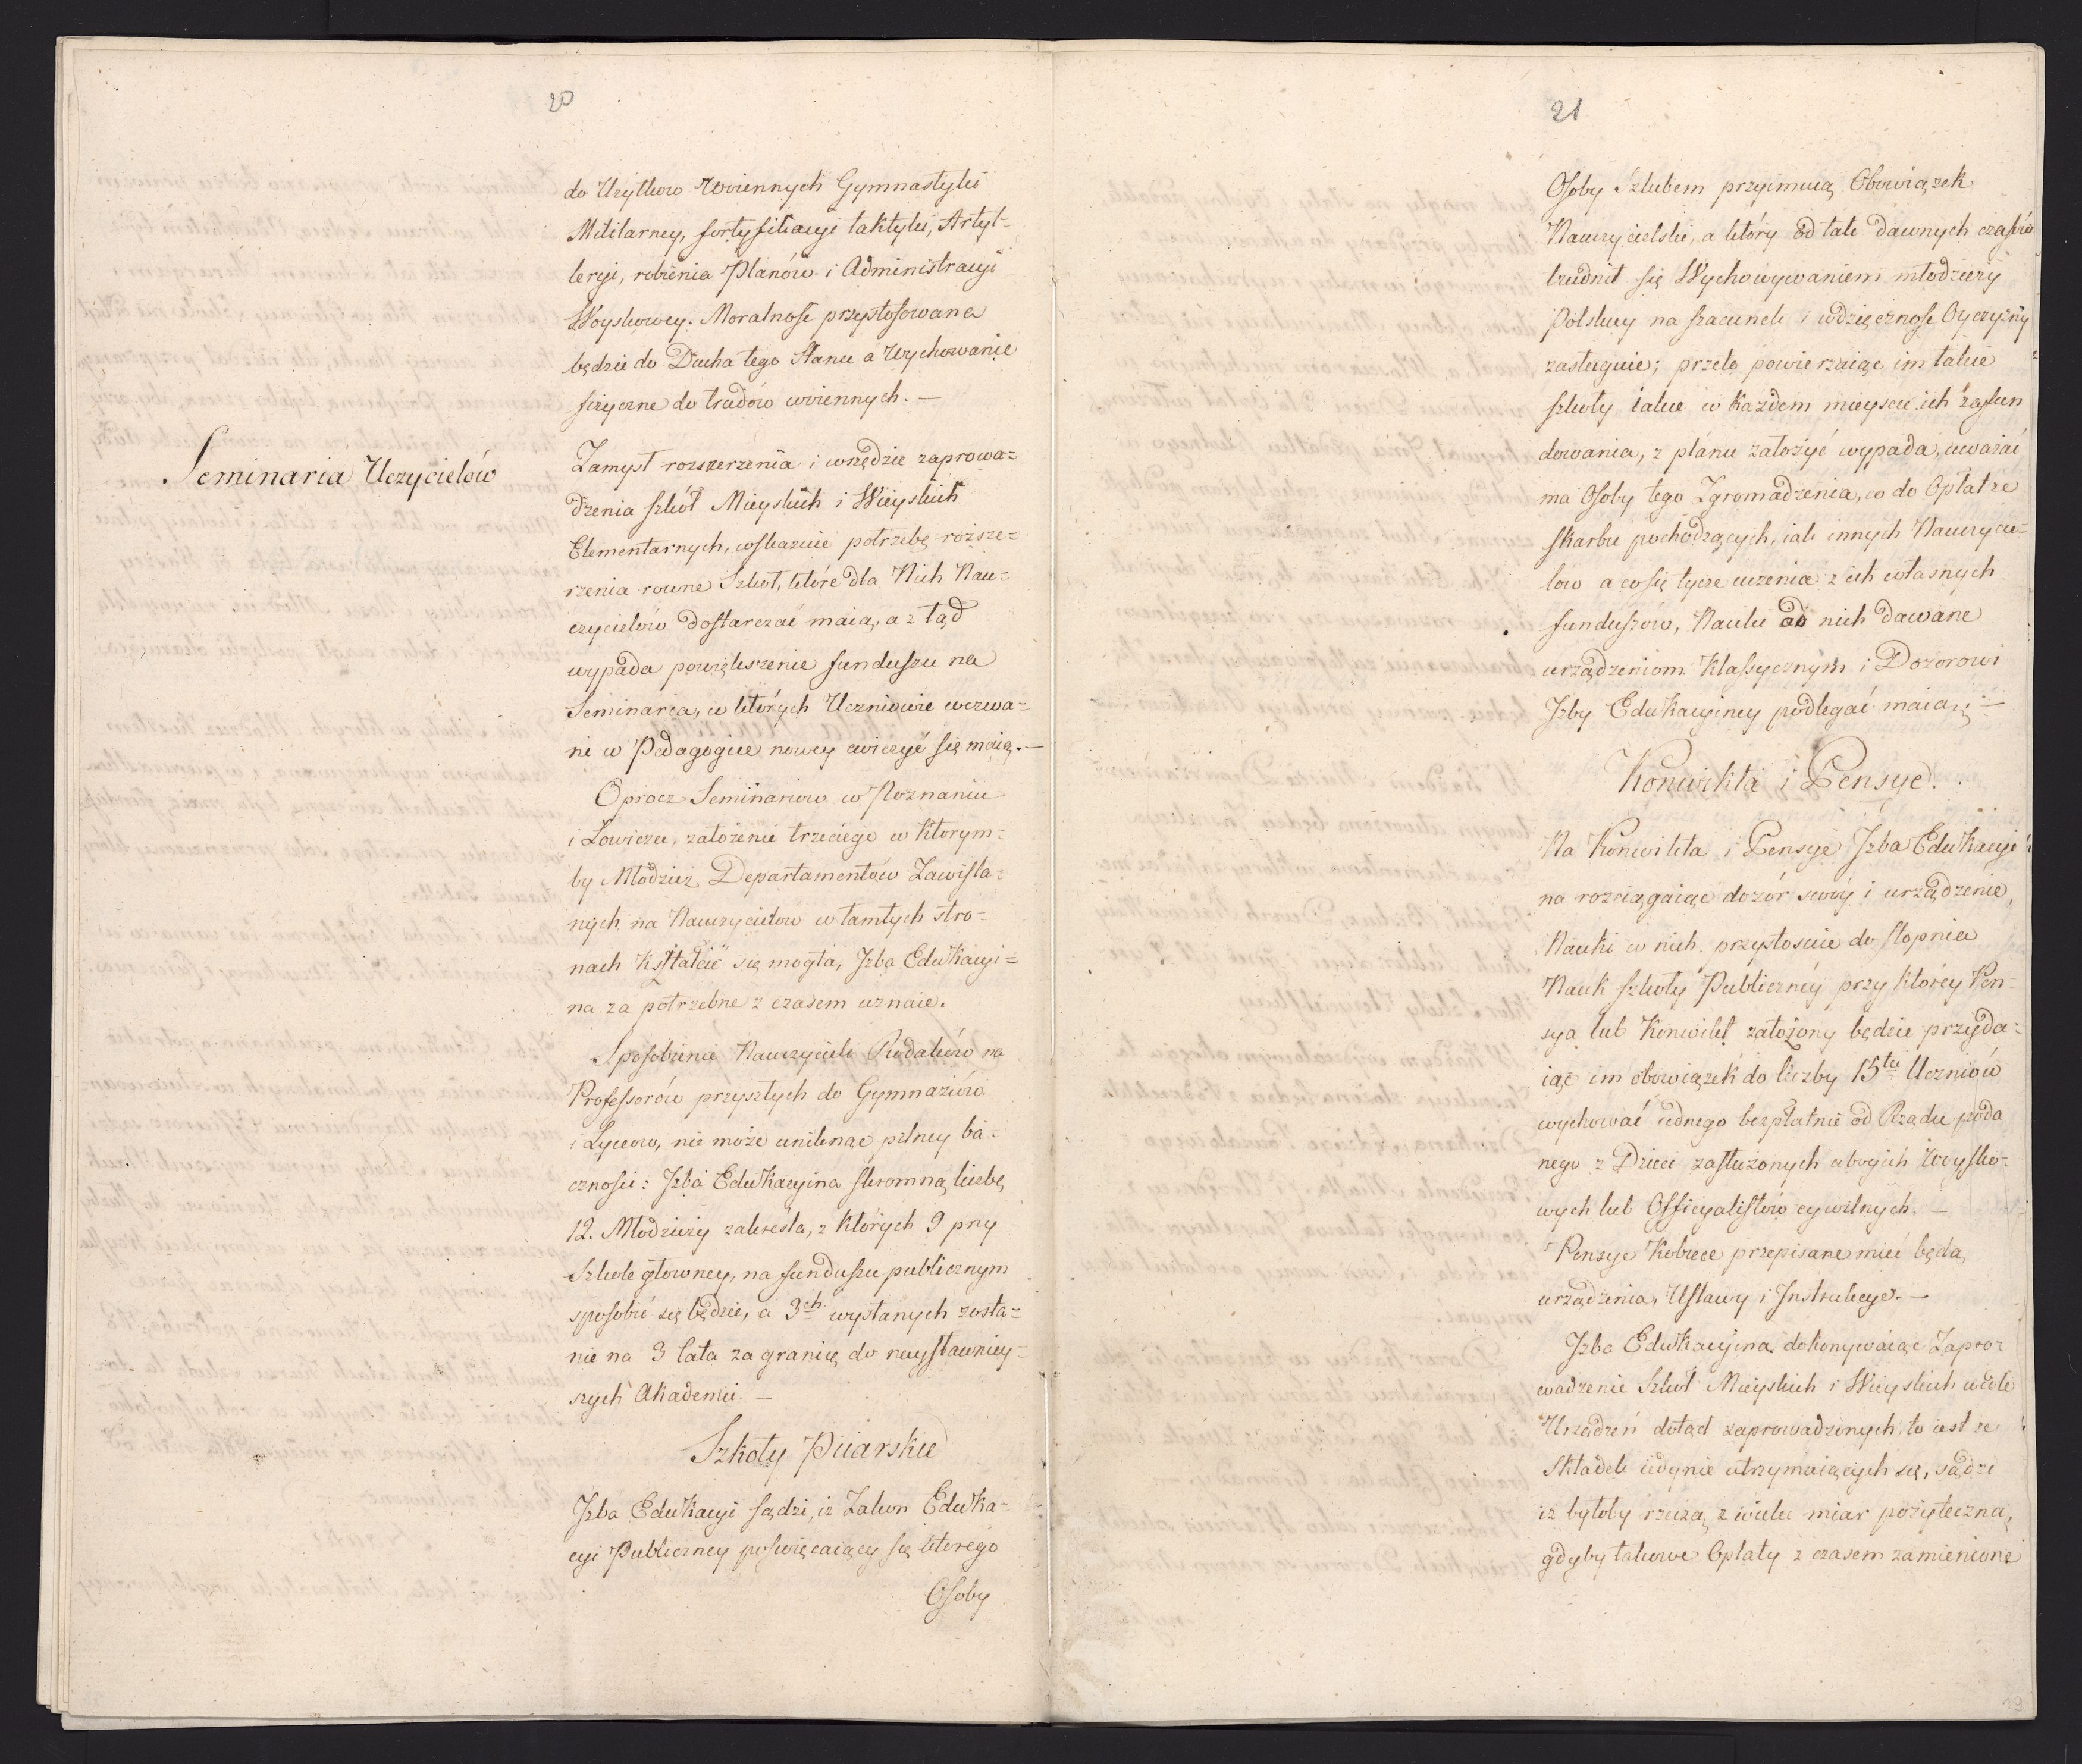 20
do Użytków woiennych Gymnastyki
Militarney, fortyfikacyi taktyki, Artyl-
leryi, robienia Planów i Administracyi
Woyskowey. Moralność przystosowana
będzie do Ducha tego Stanu a wychowanie
fizyczne do trudów woiennych. —
Seminaria Uczycielów
Zamysł rozszerzenia i wszędzie zaprowa=
dzenia szkół Mieyskich i Wieyskich
Elementarnych, wskazuie potrzebę rozsze=
rzenia rowne Szkoł, które dla Nich Nau=
czycielów dostarczać maią, a z tąd
wypada powiększenie funduszu na
Seminaria, w których Uczniowie wezwa=
ni w Pedagogice nowey ćwiczyć się maią. —
Oprocz Seminariow w Poznaniu
i Łowiczu, założenie trzeciego w ktorym=
by Młodzież Departamentów Zawisla=
nych na Nauczycielow w tamtych stro=
nach kształcić się mogła, Jzba Edukacyi=
na za potrzebne z czasem uznaie.
Sposobienie Nauczycieli Rodaków na
Professorów przyszłych do Gymnaziów
i Lyceow, nie może uniknąć pilney ba=
czności: Jzba Edukacyina skromną liczbę
12. Młodzieży zakreśla, z których 9 przy
Szkole głowney, na funduszu publicznym
sposobić się będzie, a 3ch wysłanych zosta=
nie na 3 lata za granicę do naysławniey=
szych Akademii. —
Szkoły Piiarskie
Jzba Edukacyi sądzi, iż Zakon Eduka=
cyi Publiczney poświęcaiący się którego
Osoby
21
Osoby Szlubem przyimuią Obowiązek
Nauczycielski, a który od tak dawnych czasów
trudnił się Wychowywaniem młodzieży
Polskiey na szacunek i wdzięczność Oyczyzny
zasługuie; przeto powierzaiąc im takie
szkoły iakie w każdem mieyscu ich zafun
dowania, z planu założyć wypada, uważać
ma Osoby tego Zgromadzenia, co do Opłat ze
skarbu pochodzących, iak innych Nauczycie=
low a co się tycze uczenia z ich własnych
funduszów, Nauki od nich dawane
urządzeniom Klassycznym i Dozorowi
Jzby Edukacyiney podlegać maią. —
Konwikta i Pensye.
Na Konwikta i Pensye Jzba Edukacyi
na rozciągaiąc dozór swóy i urządzenie,
Nauki w nich przystosuie do stopnia
Nauk szkoły Publiczney przy którey Pen-
sya lub Konwikt założony będzie przyda=
iąc im obowiązek do liczby 15tu Uczniów
wychować iednego bezpłatnie od Rządu poda
nego z Dzieci zasłużonych ubogich Woysko=
wych lub Officyalistów cywilnych. —
Pensye Kobiece przepisane mieć będą,
urządzenia, Ustawy i Instrukcye. —
Jzba Edukacyina dokonywaiąc Zapro=
wadzenie Szkół Mieyskich i Wieyskich wedle
Urządzeń dotąd zaprowadzonych to iest ze
Składek iedynie utrzymuiących się, sądzi
iż byłoby rzeczą z wielu miar pożyteczną,
gdyby takowe Opłaty z czasem zamienione
19